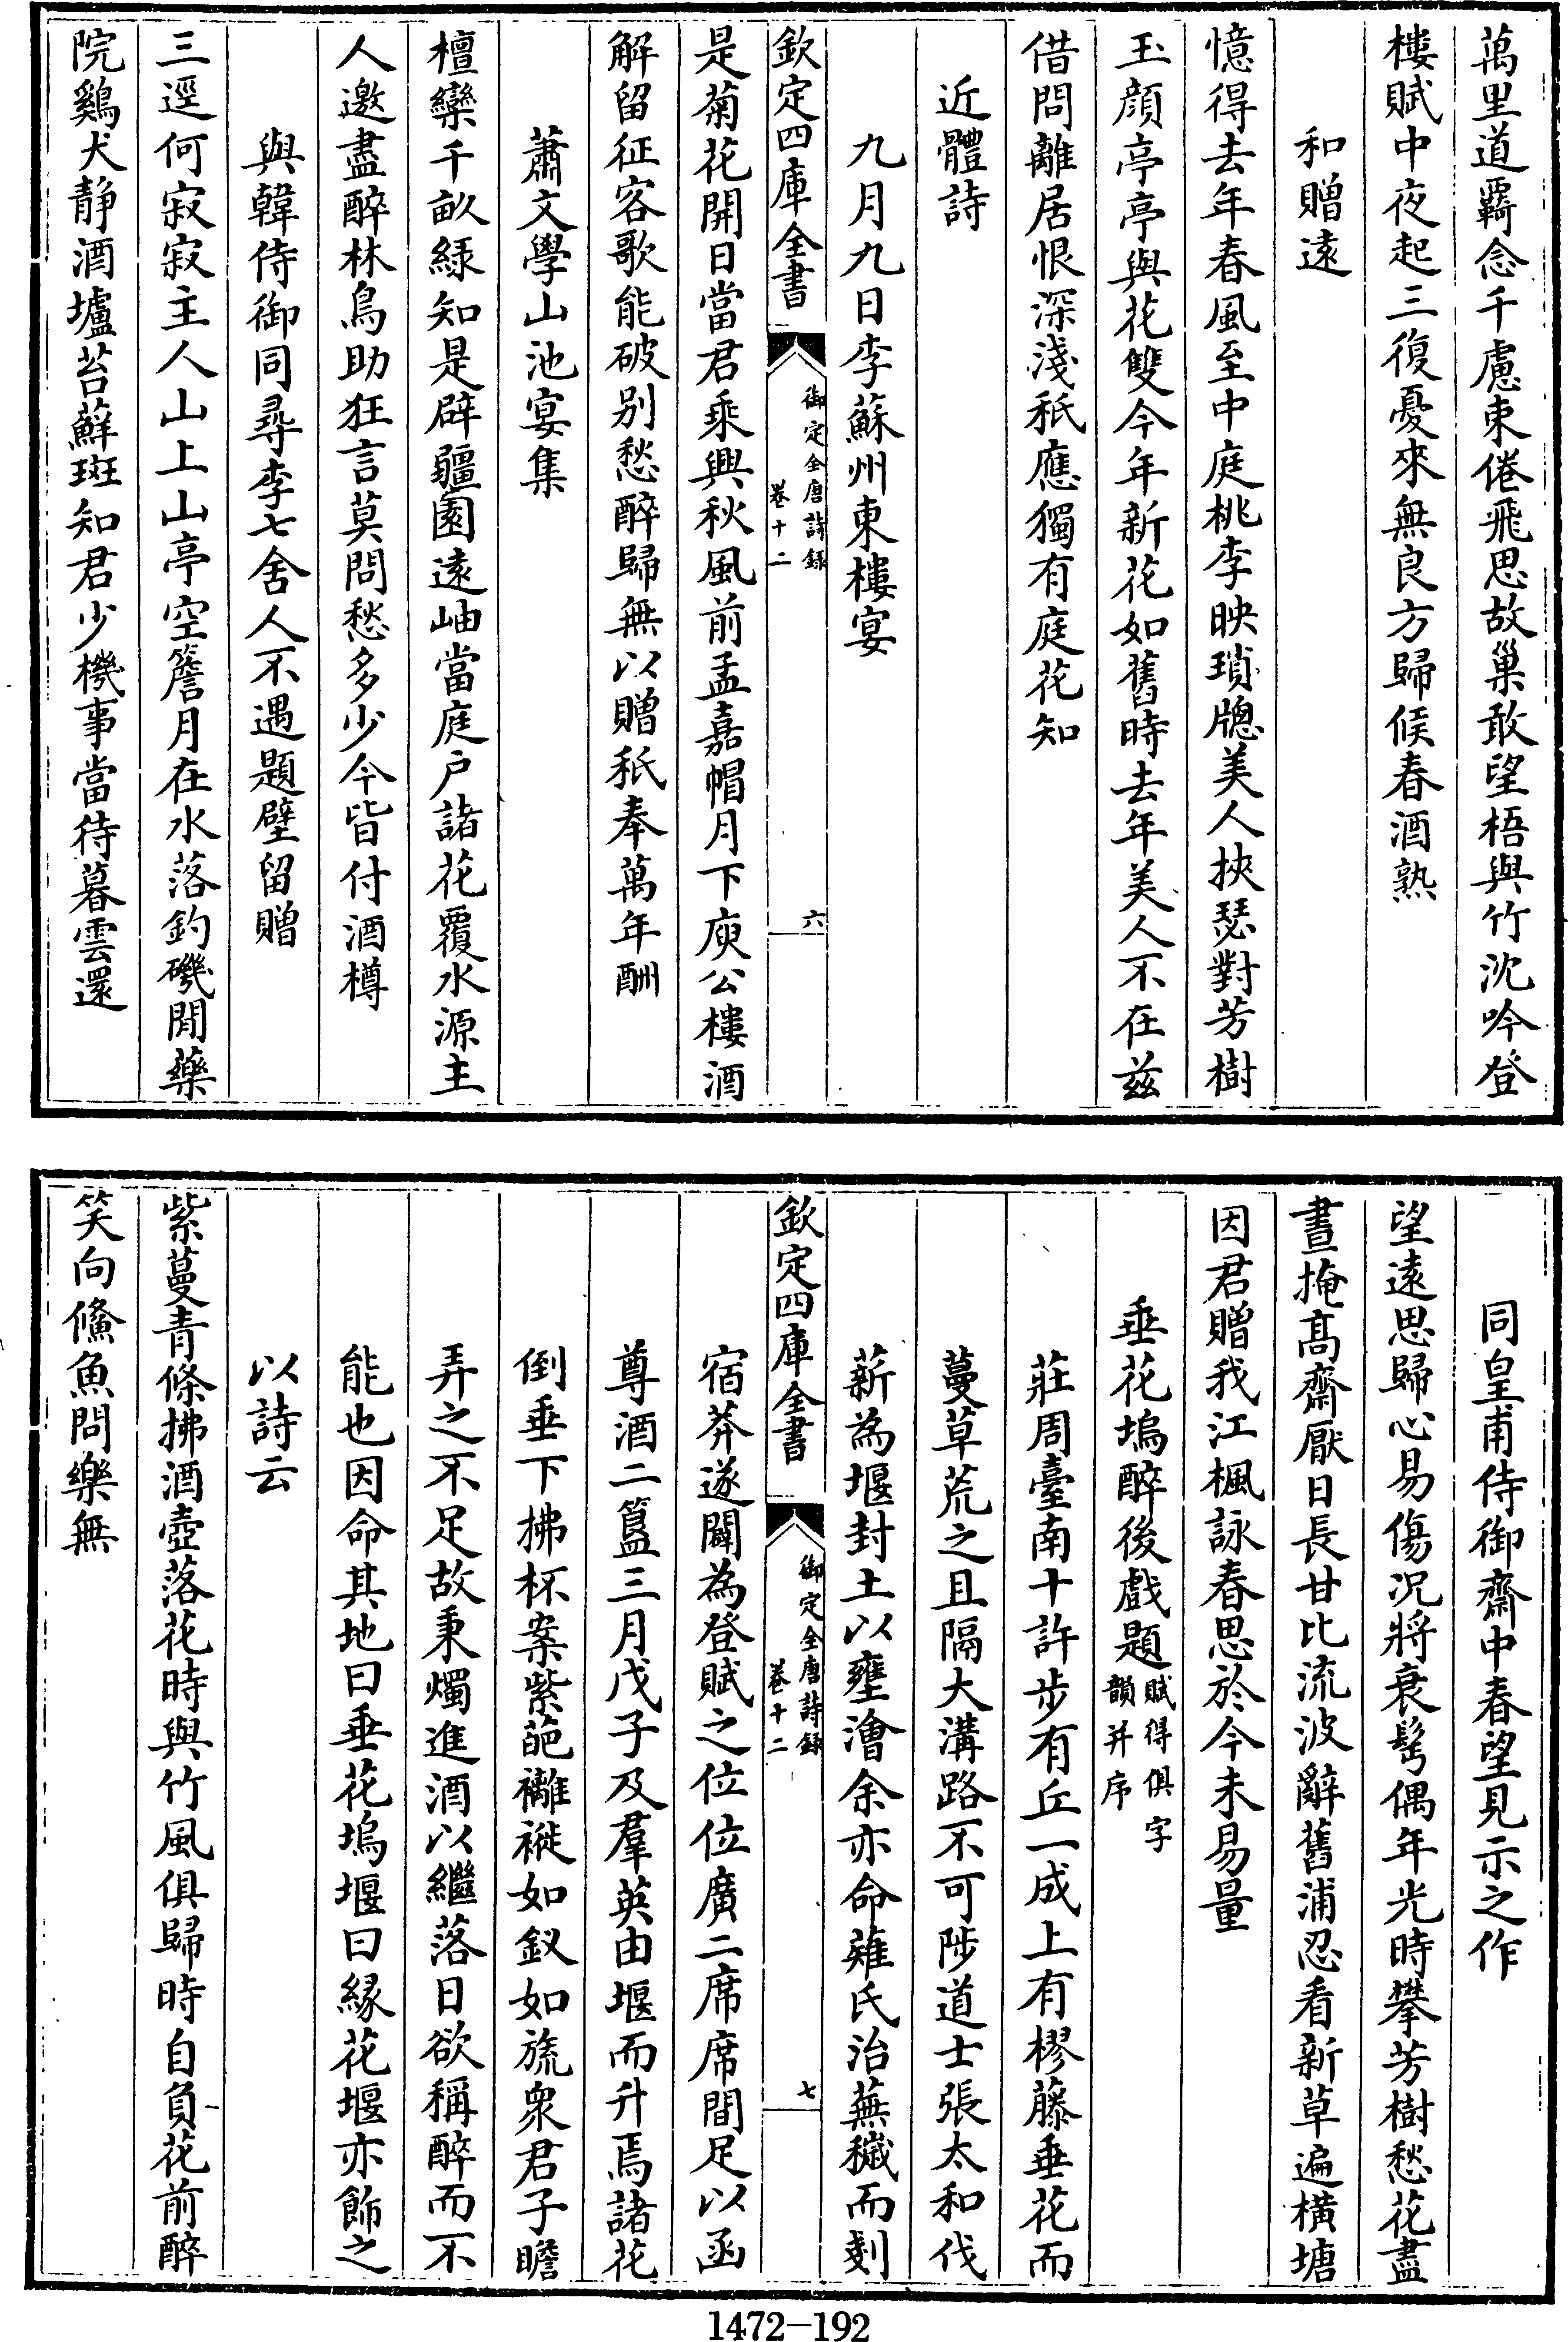 萬里道覊念千慮束倦飛思故巢敢望梧與竹沈吟登
樓賦中夜起三復憂來無良方歸候春酒熟
和贈遠
憶得去年春風至中庭桃李映瑣牕美人挾瑟對芳樹
玉顔亭亭與花雙今年新花如舊時去年美人不在兹
借問離居恨深淺秖應獨有庭花知
近體詩
九月九日李蘇州東樓宴
欽定四庫全書
御定全唐詩録
卷十二
六
是菊花開日當君乘興秋風前孟嘉帽月下庾公樓酒
解留征客歌能破别愁醉歸無以贈秖奉萬年酬
蕭文學山池宴集
檀欒千畝緑知是辟疆園遠岫當庭户諸花覆水源主
人邀盡醉林鳥助狂言莫問愁多少今皆付酒樽
與韓侍御同尋李七舍人不遇題壁留贈
三逕何寂寂主人山上山亭空簷月在水落釣磯閒藥
院鷄犬静酒壚苔蘚斑知君少機事當待暮雲還
同皇甫侍御齋中春望見示之作
望遠思歸心易傷况將衰髩偶年光時攀芳樹愁花盡
晝掩髙齋厭日長甘比流波辭舊浦忍看新草遍横塘
因君贈我江楓詠春思於今未易量
垂花塢醉後戲題賦得俱字韻并序
莊周臺南十許步有丘一成上有樛藤垂花而
蔓草荒之且隔大溝路不可陟道士張太和伐
薪為堰封土以壅澮余亦命薙氏治蕪穢而剗
欽定四庫全書
御定全唐詩録
卷十二
七
宿莽遂闢為登賦之位位廣二席席間足以函
尊酒二簋三月戊子及羣英由堰而升焉諸花
倒垂下拂杯案紫葩䙰褷如釵如旒衆君子瞻
弄之不足故秉燭進酒以繼落日欲稱醉而不
能也因命其地曰垂花塢堰曰緣花堰亦飾之
以詩云
紫蔓青條拂酒壺落花時與竹風俱歸時自負花前醉
笑向鯈魚問樂無
1472-192